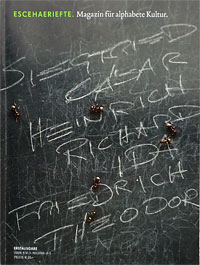 ESCEHAERIEFTE. Magazin für alphabete Kultur.
SIEGFRIED
CÄSAR
HEINRICH
RICHARD
IDA
FRIEDRICH
THEODOR
ERSTAUSGABE